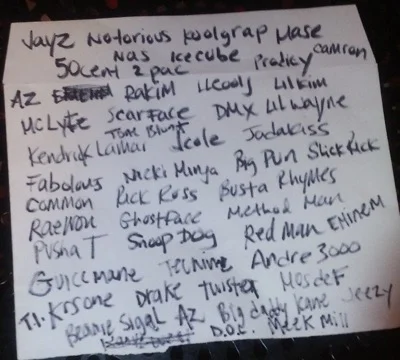 JayZ Notorious Koolgrap Mase
Nas Icecube Prodigy Camron
50cent 2pac
AZ Rakim LLcoolJ Lilkim
McLyte Scarface DMX Lil Wayne
Kendrick Lamar Jcole Jadakiss
Fabolous Nicki Minja Big Pun Slick Rick
Common Rick Ross Busta Rhymes
Raekwon Ghostface Method Man
Pusha T Snoop Dog Red Man Eminem
Guccmane Tech nine Andre 3000
T.I. Krsone Drake Twister Mosdef
Beanie Sigal AZ Big Daddy Kane Jeezy
D.O.C. Meek Mill